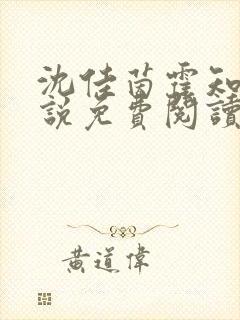 沈佳茵霍知
說免費閱讀
黃道偉